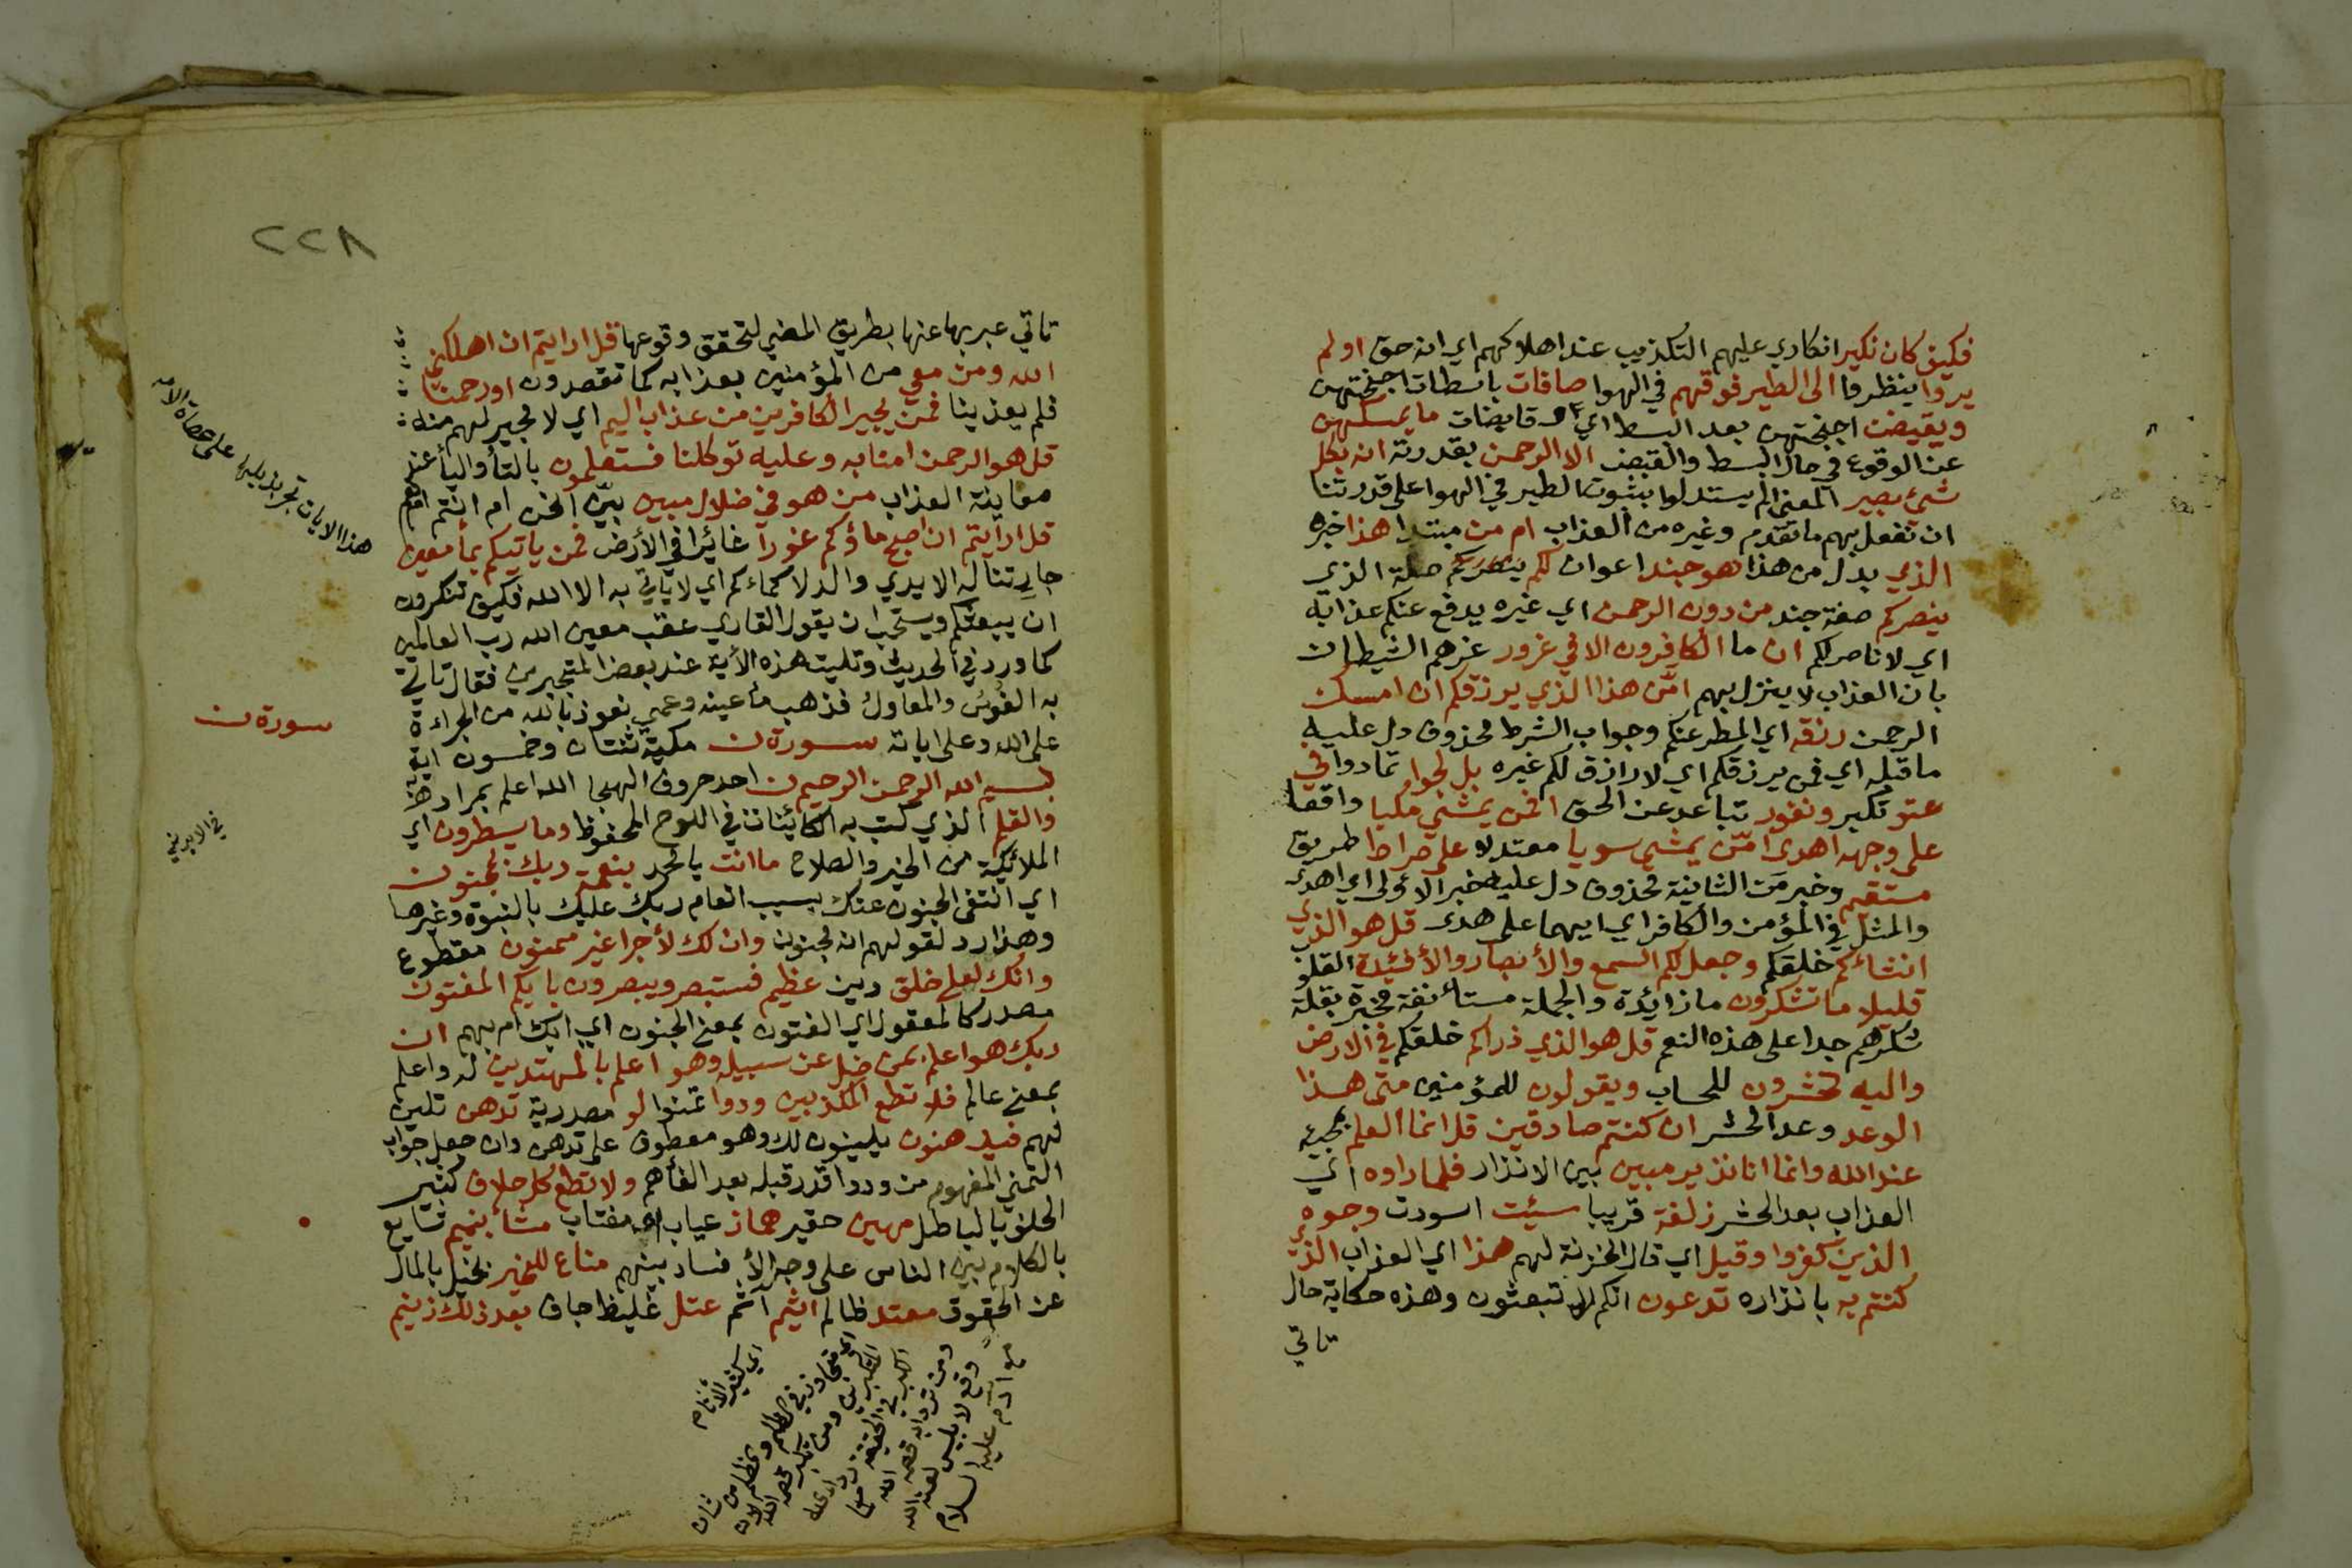 فكيف كان نكير انكاري عليهم التكذيب عند اهلاكهم اي انه حق اولم
يروا ينظروا الى الطير فوقهم في الهوا صافات باسطات اجنحتهن
ويقبضن اجنحتهن بعد البسط اي وقابضات ما يمسكهن
عن الوقوع في حال البسط والقبض الا الرحمن بقدرته انه بكل
شيئ بصير المعنى الم يستدلوا بثبوت الطير في الهوا على قدرتنا
ان نفعل بهم ما تقدم وغيره من العذاب ام من مبتدا هذا خبره
الذي بدل من هذا هو جند اعوان لكم ينصركم صلة الذي
ينصركم صفة جند من دون الرحمن اي غيره يدفع عنكم عذابه
اي لا ناصر لكم ان ما الكافرون الا في غرور غرهم الشيطان
بان العذاب لا ينزل بهم امّن هذا الذي يرزقكم ان امسك
الرحمن رزقه اي المطر عنكم وجواب الشرط محذوف دل عليه
ما قبله اي فمن يرزقكم اي لا رازق لكم غيره بل لجوا تمادوا في
عتو تكبر ونفور تباعد عن الحق افمن يمشي مكبا واقعا
على وجهه اهدى امّن يمشي سويا معتدلا على صراط طريق
مستقيم وخبر مَن الثانية محذوف دل عليه خبر الاولى اي اهدى
والمثل في المؤمن والكافر اي ايهما على هدى قل هو الذي
انشاءكم خلقكم وجعل لكم السمع والأبصار والأفئدة القلوب
قليلا ما تشكرون ما زائدة والجملة مستأنفة مخبرة بقلة
شكرهم جدا على هذه النعم قل هو الذي ذراكم خلقكم في الارض
واليه تحشرون للحساب ويقولون للمؤمنين متى هذا
الوعد وعد الحشر ان كنتم صادقين قل انما العلم بمجيئه
عند الله وانما انا نذير مبين بيّن الانذار فلما راوه اي
العذاب بعد الحشر زلفة قريبا سيئت اسودت وجوه
الذين كفروا وقيل اي قال الخزنة لهم هذا اي العذاب الذي
كنتم به بانذاره تدعون انكم لا تبعثون وهذه حكاية حال
تاتي
٢٢٨
تاتي عبر بها عنها بطريق المضي لتحقق وقوعها قل ارايتم ان اهلكني
الله ومن معي من المؤمنين بعذابه كما تقصدون او رحمنا
فلم يعذبنا فمن يجير الكافرين من عذاب اليم اي لا مجير لهم منه
قل هو الرحمن امنا به وعليه توكلنا فستعلمون بالتأ واليأ عند
معاينة العذاب من هو في ضلال مبين بيّن انحن ام انتم ام هم
قل ارأيتم ان اصبح ماؤكم غورا غائرا في الأرض فمن ياتيكم بمأ معين
جار تناله الايدي والدلا كماءكم اي لا ياتي به الا الله فكيف تنكرون
ان يبعثكم ويستحب ان يقول القاري عقب معين الله رب العالمين
كما ورد في الحديث وتليت هذه الأية عند بعض المتجبرين فقال تاتي
به الفؤس والمعاول فذهب مأ عينه وعمي نعوذ بالله من الجراءة
على الله وعلى اياته سورة ن مكية ثنتان وخمسون اية
بسم الله الرحمن الرحيم ن احد حروف الهجا الله اعلم بمراده به
والقلم الذي كتب به الكائنات في اللوح المحفوظ وما يسطرون اي
الملائكة من الخير والصلاح ما انت يا محمد بنعمة ربك بمجنون
اي انتفى الجنون عنك بسبب انعام ربك عليك بالنبوة وغيرها
وهذا رد لقولهم انه لمجنون وان لك لأجرا غير ممنون مقطوع
وانك لعلى خلق دين عظيم فستبصر ويبصرون بايكم المفتون
مصدر كالمعقول اي الفتون بمعنى الجنون اي ابك ام بهم ان
ربك هو اعلم بمن ضل عن سبيله وهو اعلم بالمهتدين له واعلم
بمعنى عالم فلا تطع المكذبين ودوا تمنوا لو مصدرية تدهن تلين
لهم فيدهنون يلينون لك وهو معطوف على تدهن وان جعل جواب
التمني المفهوم من ودوا قدر قبله بعد الفأ هم ولا تطع كل حلاف كثير
الحلف بالباطل مهين حقير هماز عياب اي مغتاب مشأ بنميم تشايع
بالكلام بين الناس على وجه الأفساد بينهم مناع للخير بخيل بالمال
عن الحقوق معتد ظالم اثيم آثم عتل غليظ جاف بعد ذلك زنيم
سورة ن
هذا الايات
اي كثير الاثام
اي متجاوز في الظلم
مع ادم عليه السلام